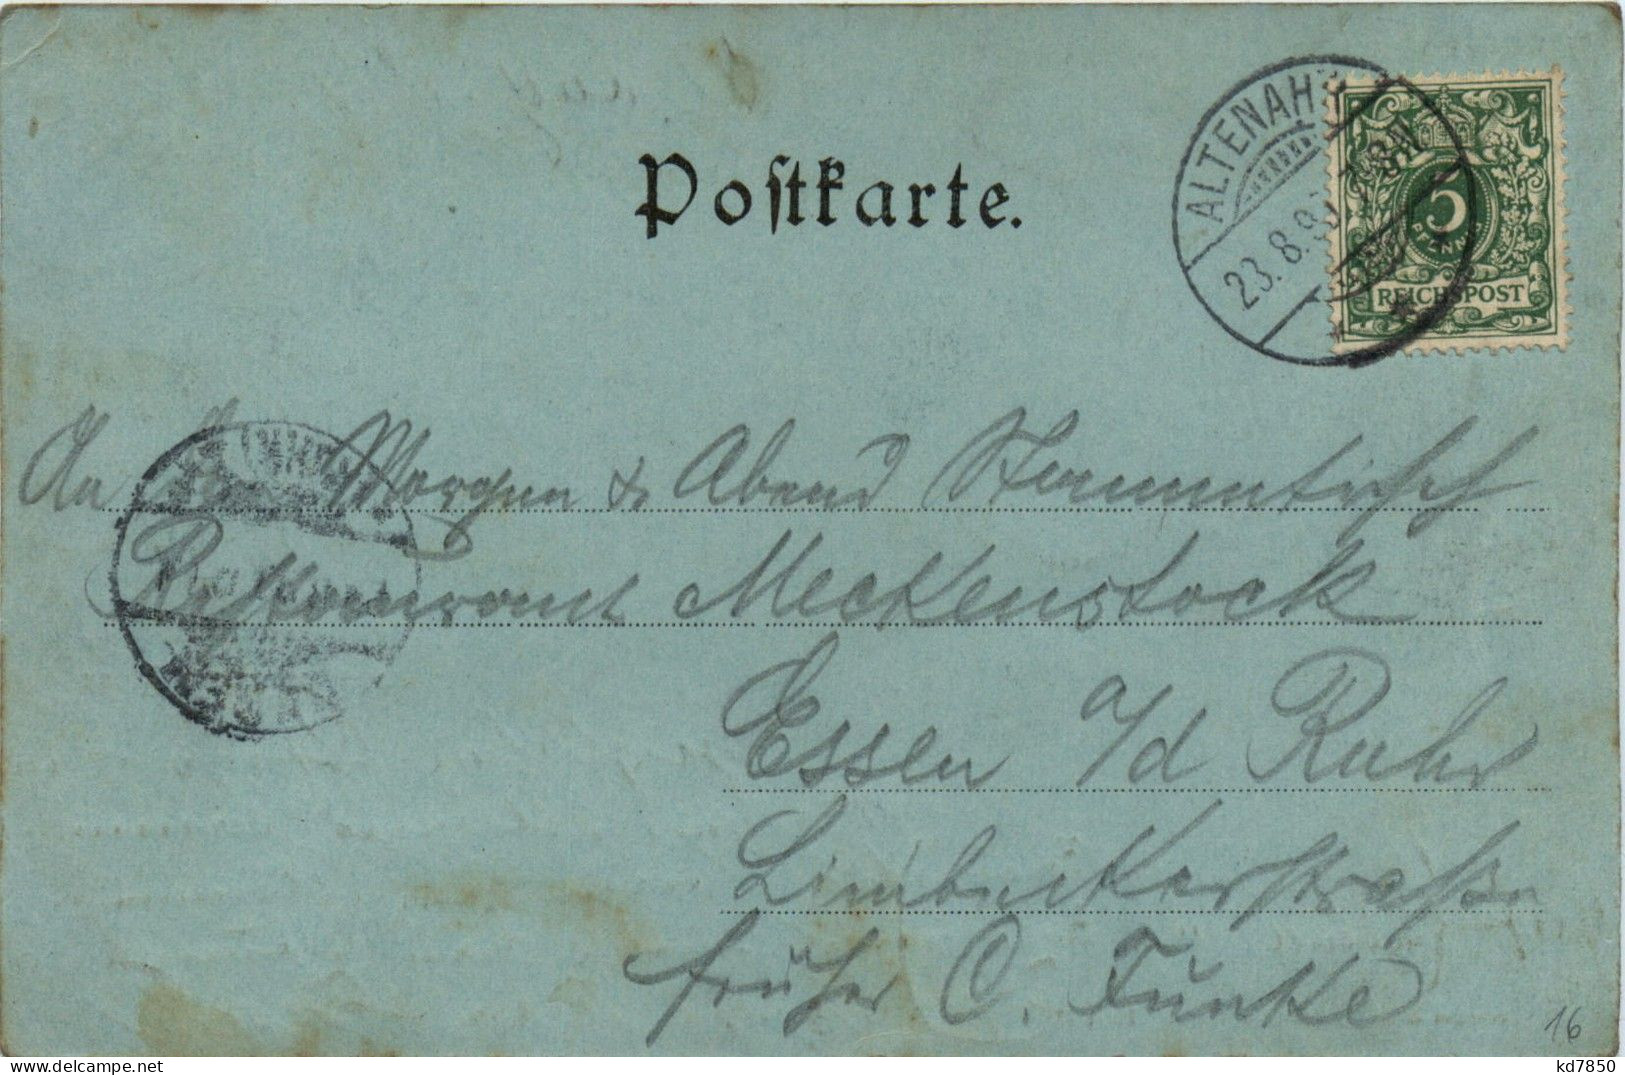 Postkarte.
ALTENAHR
23.8.9
5
PFENNIG
REICHSPOST
An Morgen & Abend Stammtisch
Restaurant Meckenstock
Essen a/d Ruhr
Limbeckerstraße
früher C. Funke
16
kd7850